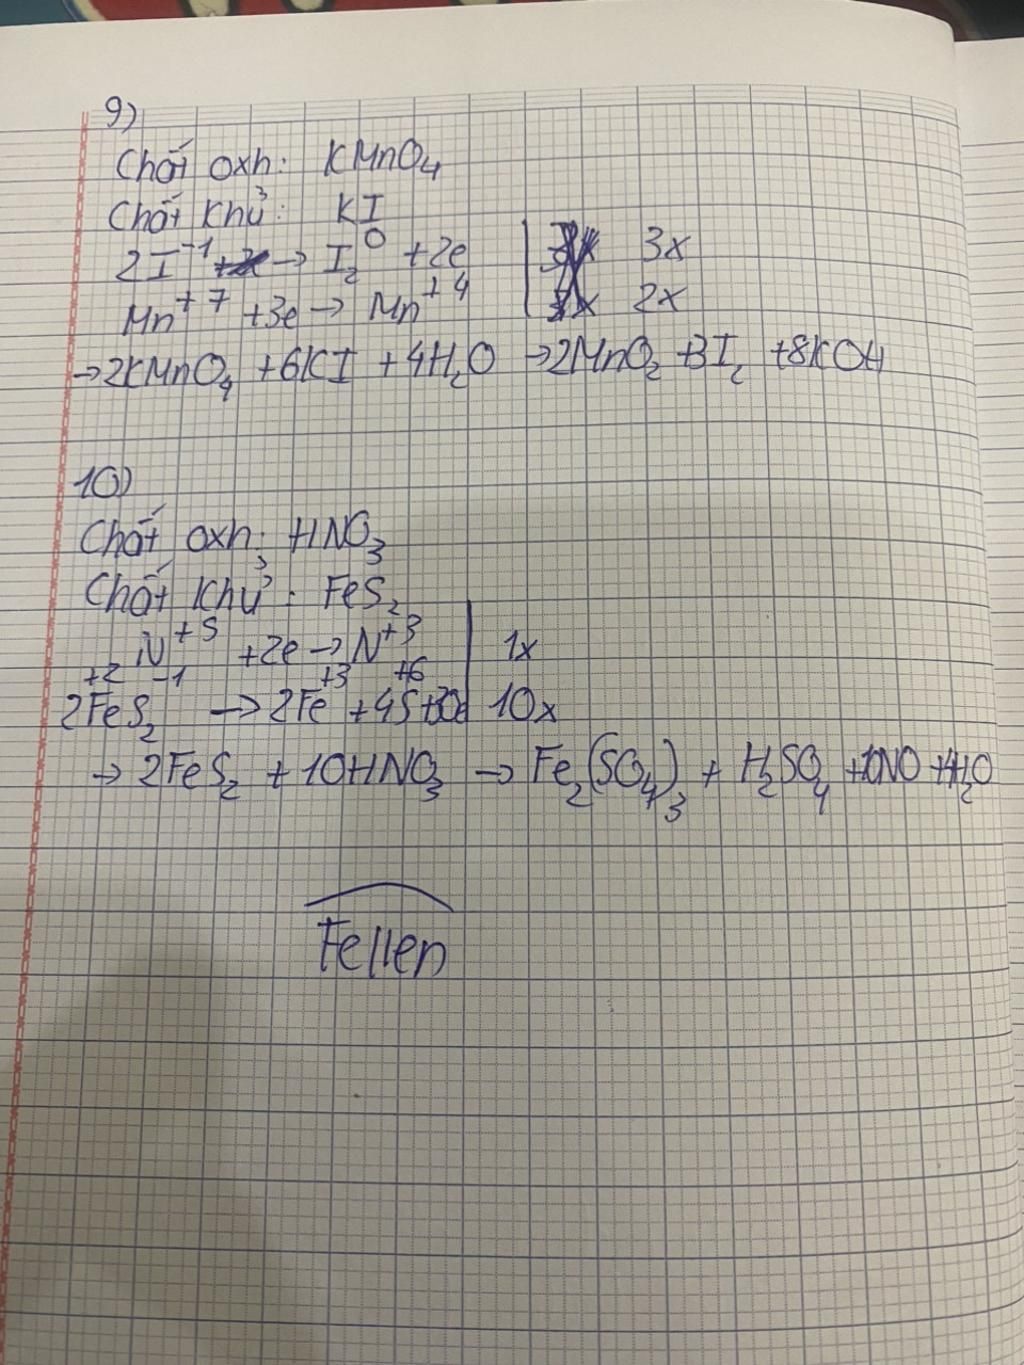 9)
Chất oxh: KMnO₄
Chất khử: KI
2I⁻¹ → I₂⁰ + 2e | 3x
Mn⁺⁷ + 3e → Mn⁺⁴ | 2x
→ 2KMnO₄ + 6KI + 4H₂O → 2MnO₂ + 3I₂ + 8KOH
10)
Chất oxh: HNO₃
Chất khử: FeS₂
N⁺⁵ + 2e → N⁺³ | 1x
+2 -1 +3 +6
2FeS₂ → 2Fe + 4S + 30e | 10x
→ 2FeS₂ + 10HNO₃ → Fe₂(SO₄)₃ + H₂SO₄ + 10NO + 4H₂O
Fellen